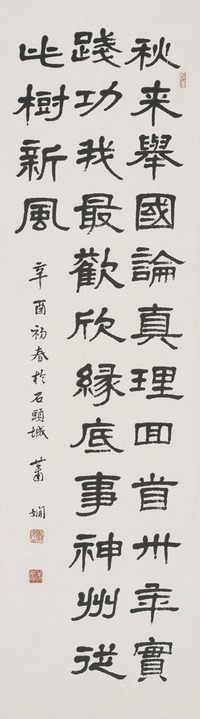 秋来舉國論真理回首卅年實
踐功我最歡欣緣底事神州從
此樹新風
辛酉初春於石頭城 蕭嫻